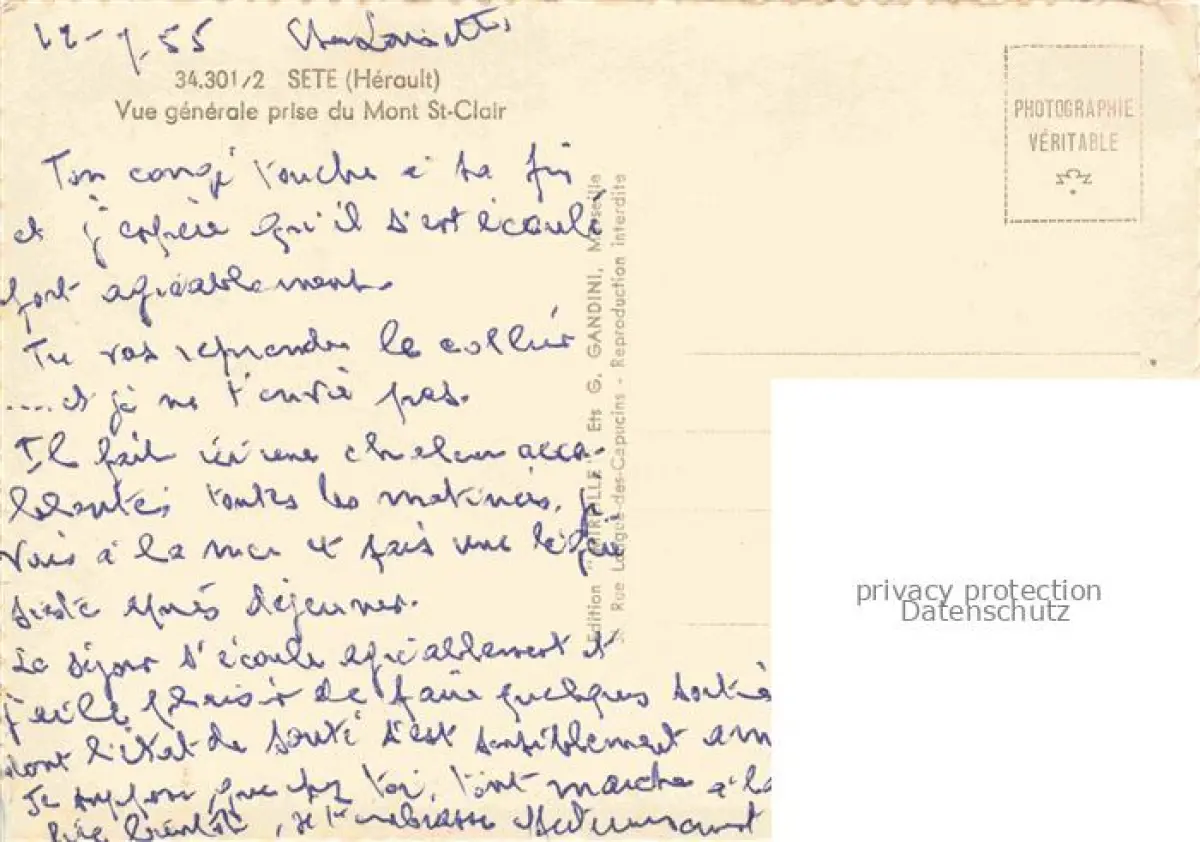 12-7-55
34.301/2 SETE (Hérault)
Vue générale prise du Mont St-Clair
PHOTOGRAPHIE
VÉRITABLE
Ton congé touche à sa fin
et j'espère qu'il s'est écoulé
fort agréablement.
Tu vas reprendre le collier
....et je ne t'envie pas.
Il fait ici une chaleur acca-
blante, toutes les matinées, je
vais à la mer et fais une légère
sieste après déjeuner.
Le séjour s'écoule agréablement et
j'ai le plaisir de faire quelques sorties
dont l'état de santé s'est sensiblement am
Je suppose que chez toi, tout marche à la
bientôt, je t'embrasse
Edition "MIREILLE" Ets G. GANDINI, Marseille
Rue Longue-des-Capucins - Reproduction interdite
privacy protection
Datenschutz